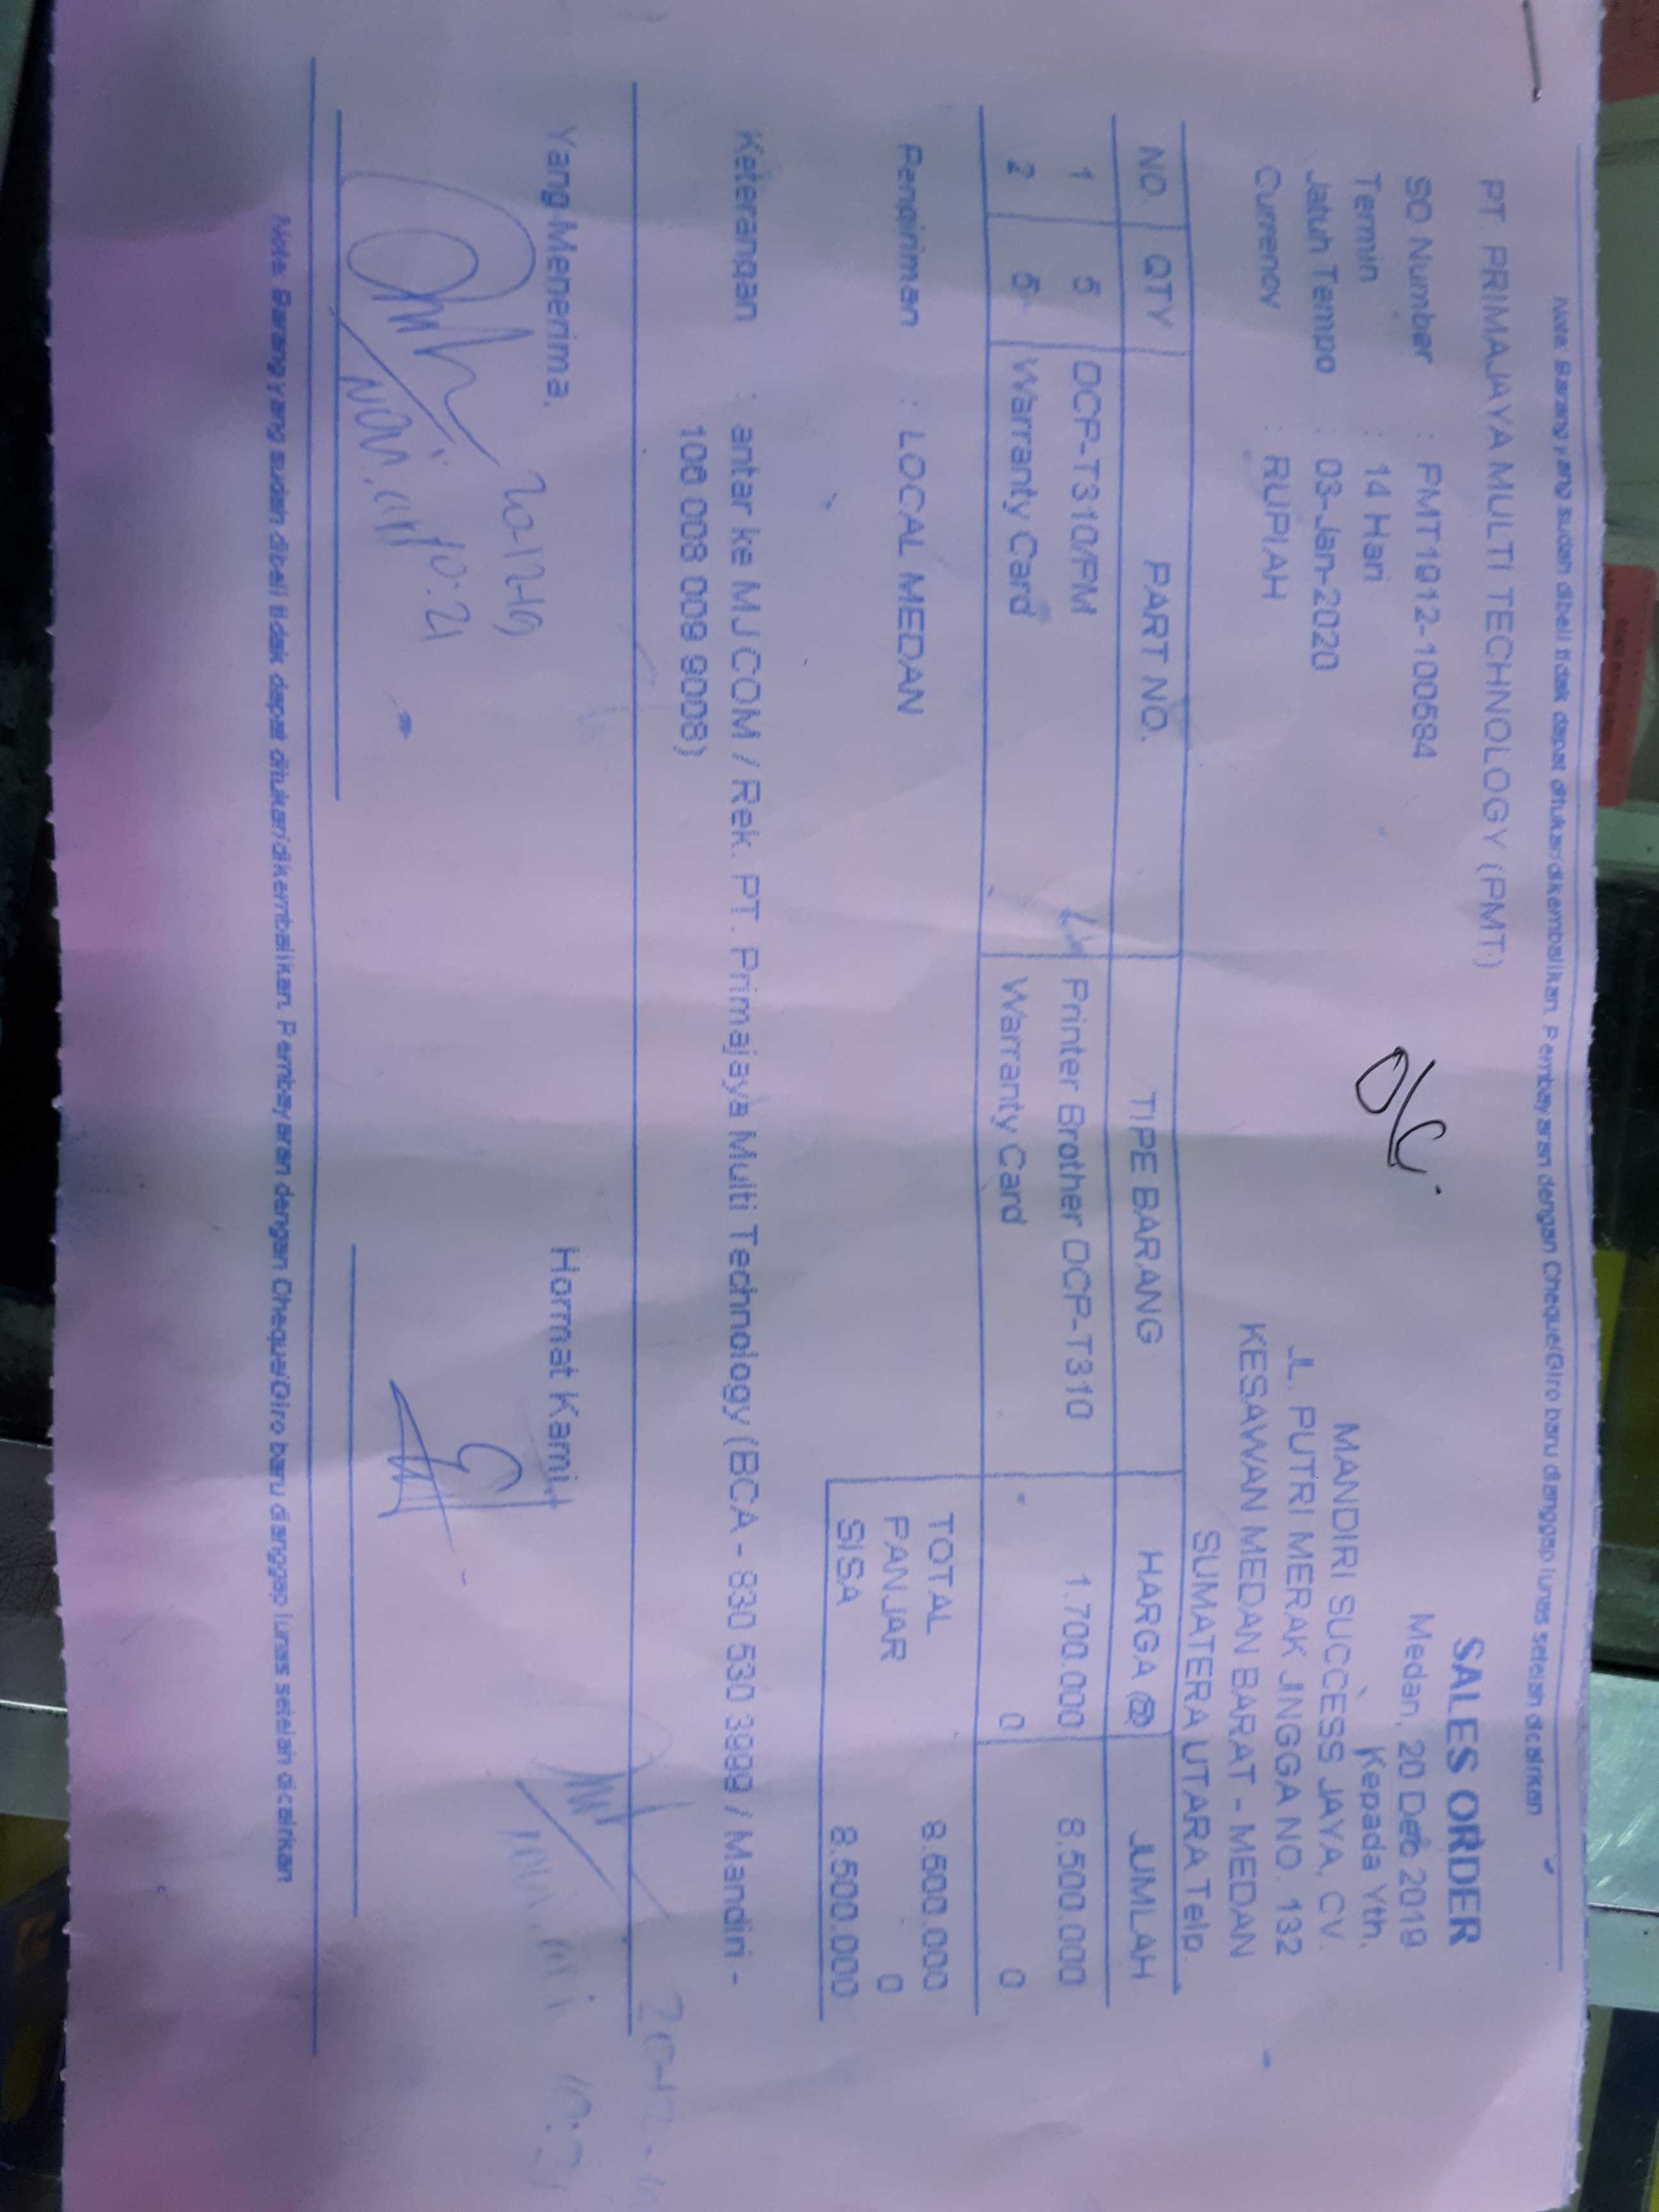 Note: Barang yang sudah dibeli tidak dapat ditukar/dikembalikan. Pembayaran dengan Cheque/Giro baru dianggap lunas setelah dicairkan
PT. PRIMAJAYA MULTI TECHNOLOGY (PMT)
SALES ORDER
SO Number : PMT1912-100584
Medan, 20 Dec 2019
Termin : 14 Hari
Kepada Yth,
OK.
Jatuh Tempo : 03-Jan-2020
MANDIRI SUCCESS JAYA, CV.
Currency : RUPIAH
JL. PUTRI MERAK JINGGA NO. 132
KESAWAN MEDAN BARAT - MEDAN
SUMATERA UTARA Telp.
NO. QTY PART NO. TIPE BARANG HARGA (@) JUMLAH
1 5 DCP-T310/PM Printer Brother DCP-T310 1.700.000 8.500.000
2 5 Warranty Card Warranty Card 0 0
Pengiriman : LOCAL MEDAN
TOTAL 8.500.000
PANJAR 0
SISA 8.500.000
Keterangan : antar ke MJ COM / Rek. PT. Primajaya Multi Technology (BCA - 830 530 3999 / Mandiri -
106 008 009 9008)
Yang Menerima,
Hormat Kami,
20-12-19
10:21
Note: Barang yang sudah dibeli tidak dapat ditukar/dikembalikan. Pembayaran dengan Cheque/Giro baru dianggap lunas setelah dicairkan